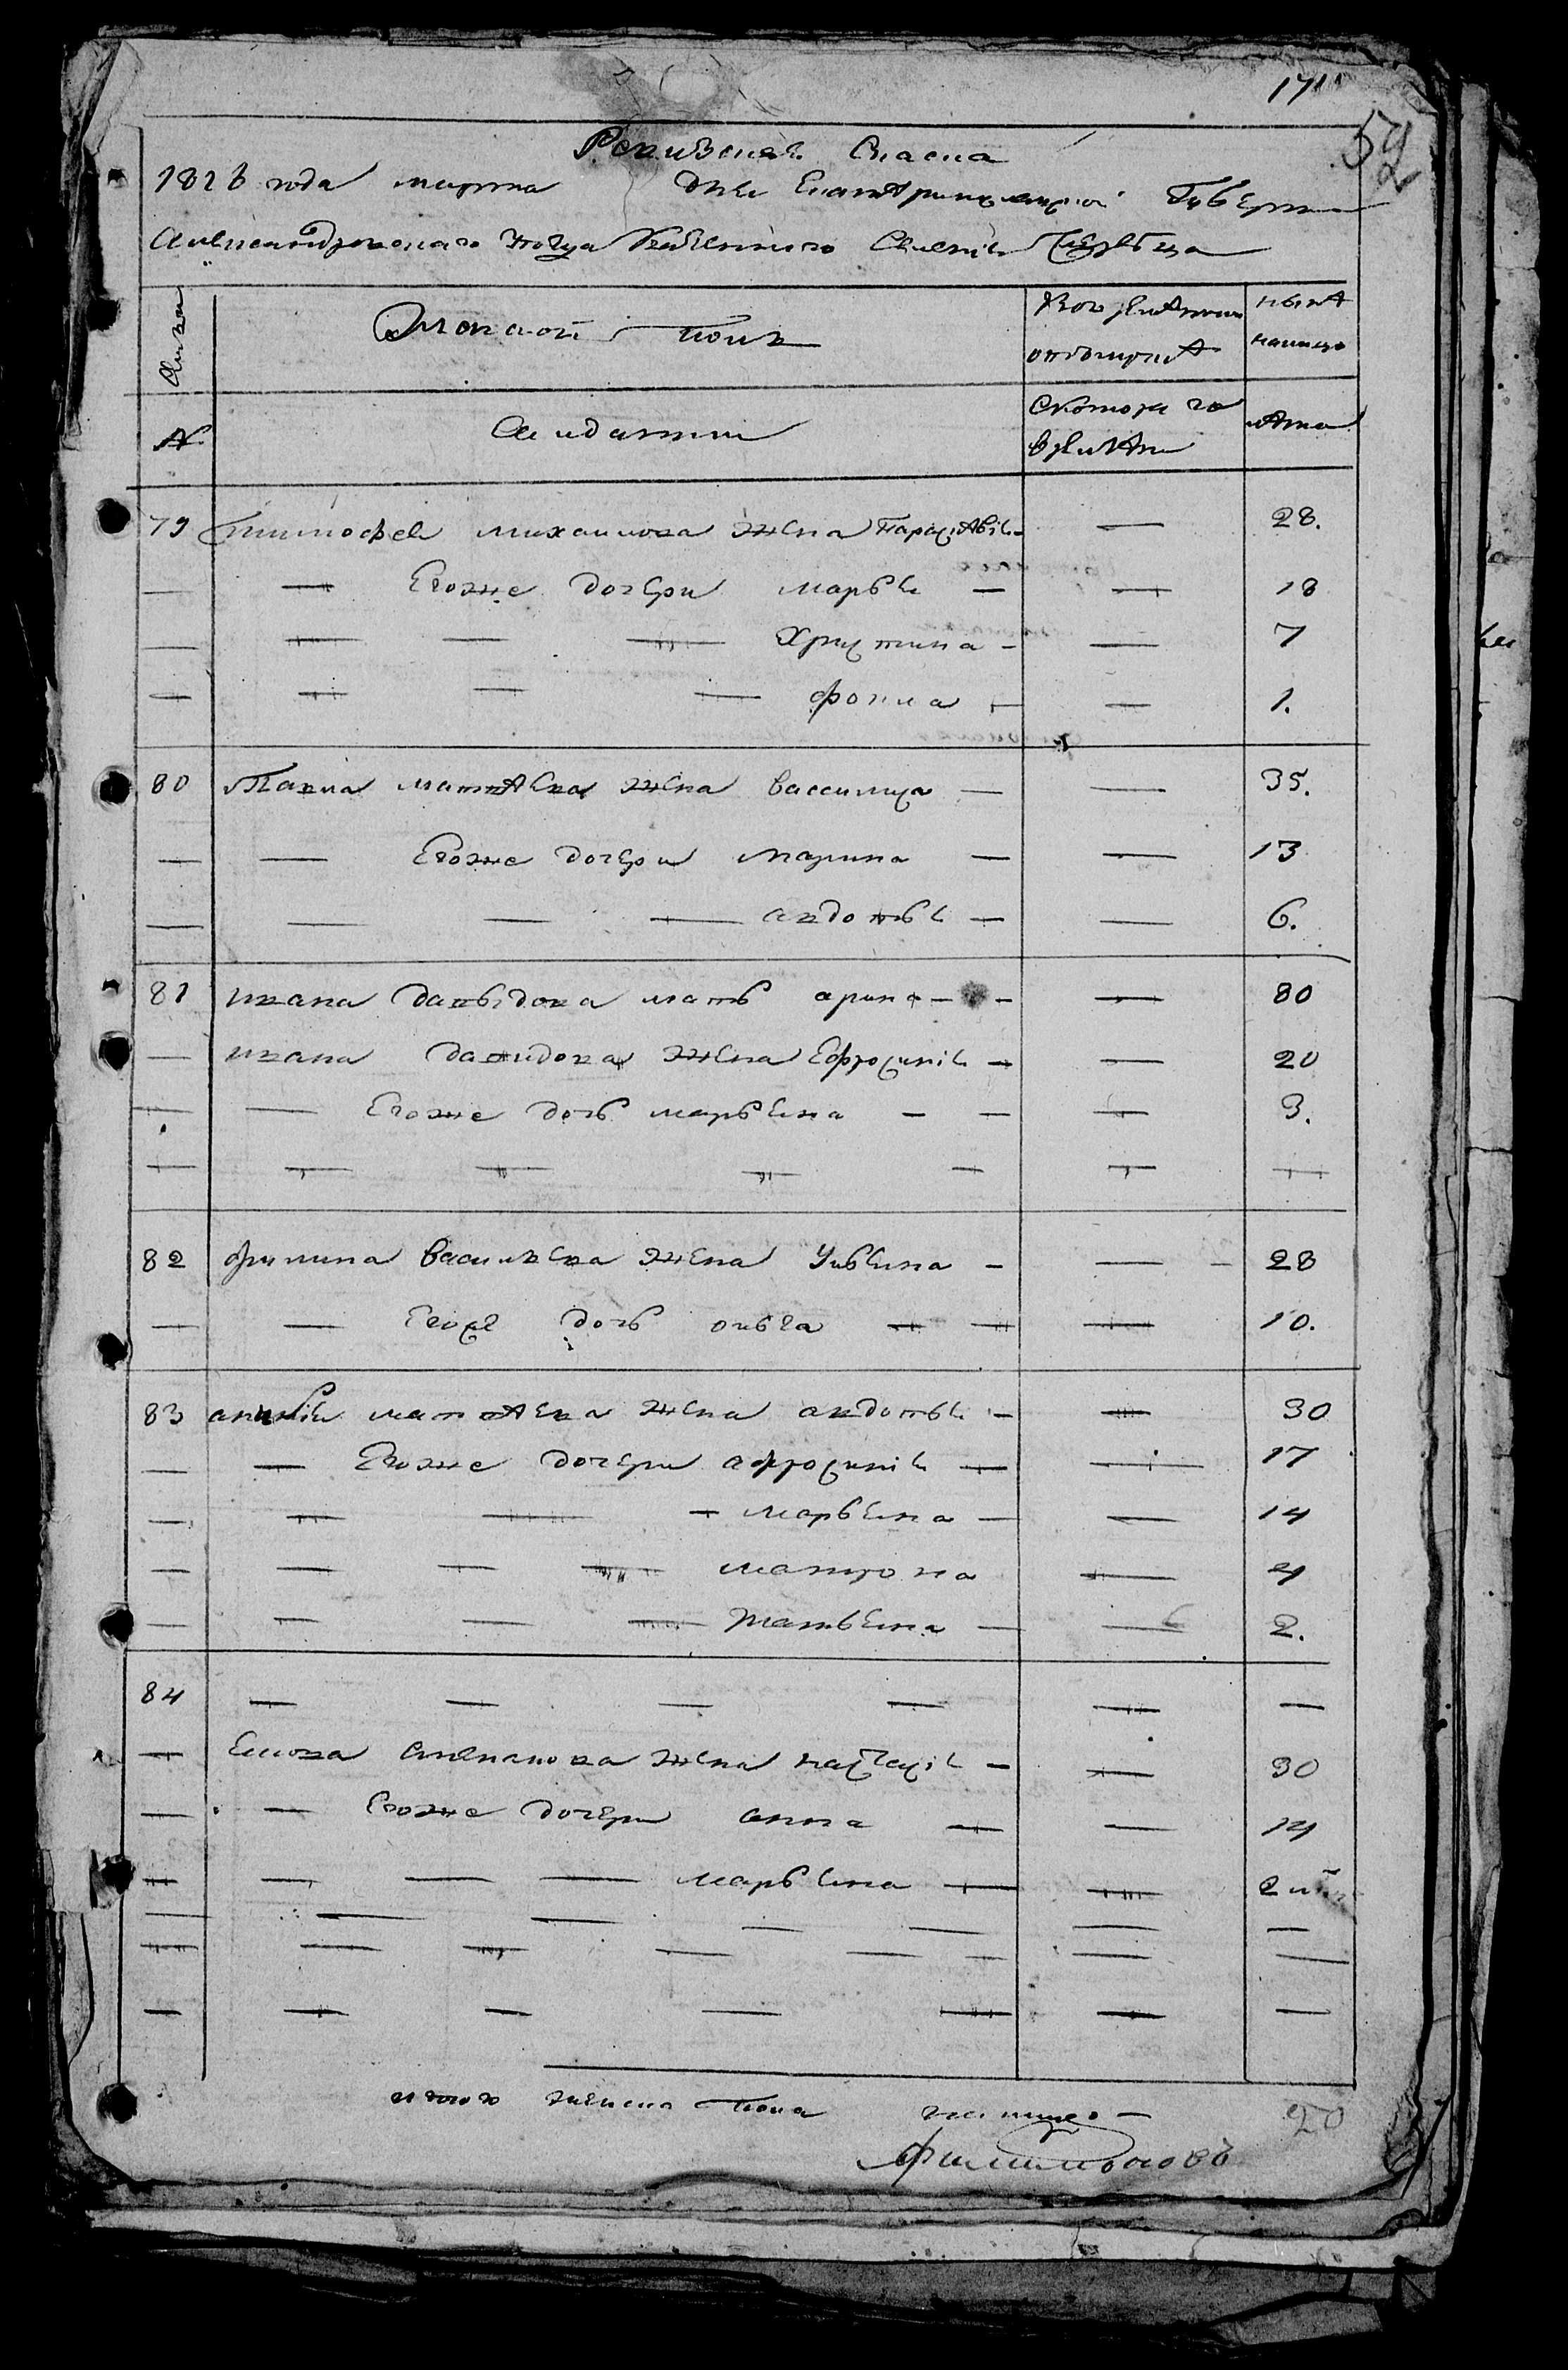 171
52
Ревизская Сказка
1816 года марта дня Екатеринославской Губерни
Александровского Уезда Казенного Селения
Женской полъ
Во временной отлучке
ныне налицо
№
Солдатки
С которого времени
Лета
79 Тимофея михаилова жена Параскавия — — 28.
— — Егоже дочери марья — — 18
— — — — Христина — — 7
— — — — фокла — — 1.
80 Павла матвеева жена вассилиса — — 35.
— — Егоже дочери марина — — 13
— — — — авдотья — — 6.
81 ивана давыдова мать арина — — 80
— ивана давидова жена Ефросиния — — 20
— — Егоже дочь марьяна — — — 3.
82 филипа василева жена Ульяна — — 28
— — Егоже дочь ольга — — — 10.
83 матвеева жена авдотья — — 30
— — Егоже дочери афросиния — — 17
— — — — марьяна — — 14
— — — — матрона — 4
— — — — татьяна — — 2.
84 — — — — — —
— степанова жена настасия — — 30
— — Егоже дочери анна — — 14
— — — — марьяна — — 2
итого женска пола налицо — 20